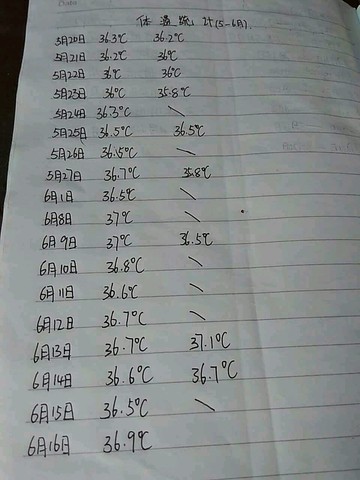 体温统计(5-6月).
5月20日 36.3℃ 36.2℃
5月21日 36.2℃ 36℃
5月22日 36℃ 36℃
5月23日 36℃ 35.8℃
5月24日 36.3℃ \
5月25日 36.5℃ 36.5℃
5月26日 36.5℃ \
5月27日 36.7℃ 35.8℃
6月1日 36.5℃ \
6月8日 37℃ \
6月9日 37℃ 36.5℃
6月10日 36.8℃ \
6月11日 36.6℃ \
6月12日 36.7℃ \
6月13日 36.7℃ 37.1℃
6月14日 36.6℃ 36.7℃
6月15日 36.5℃ \
6月16日 36.9℃